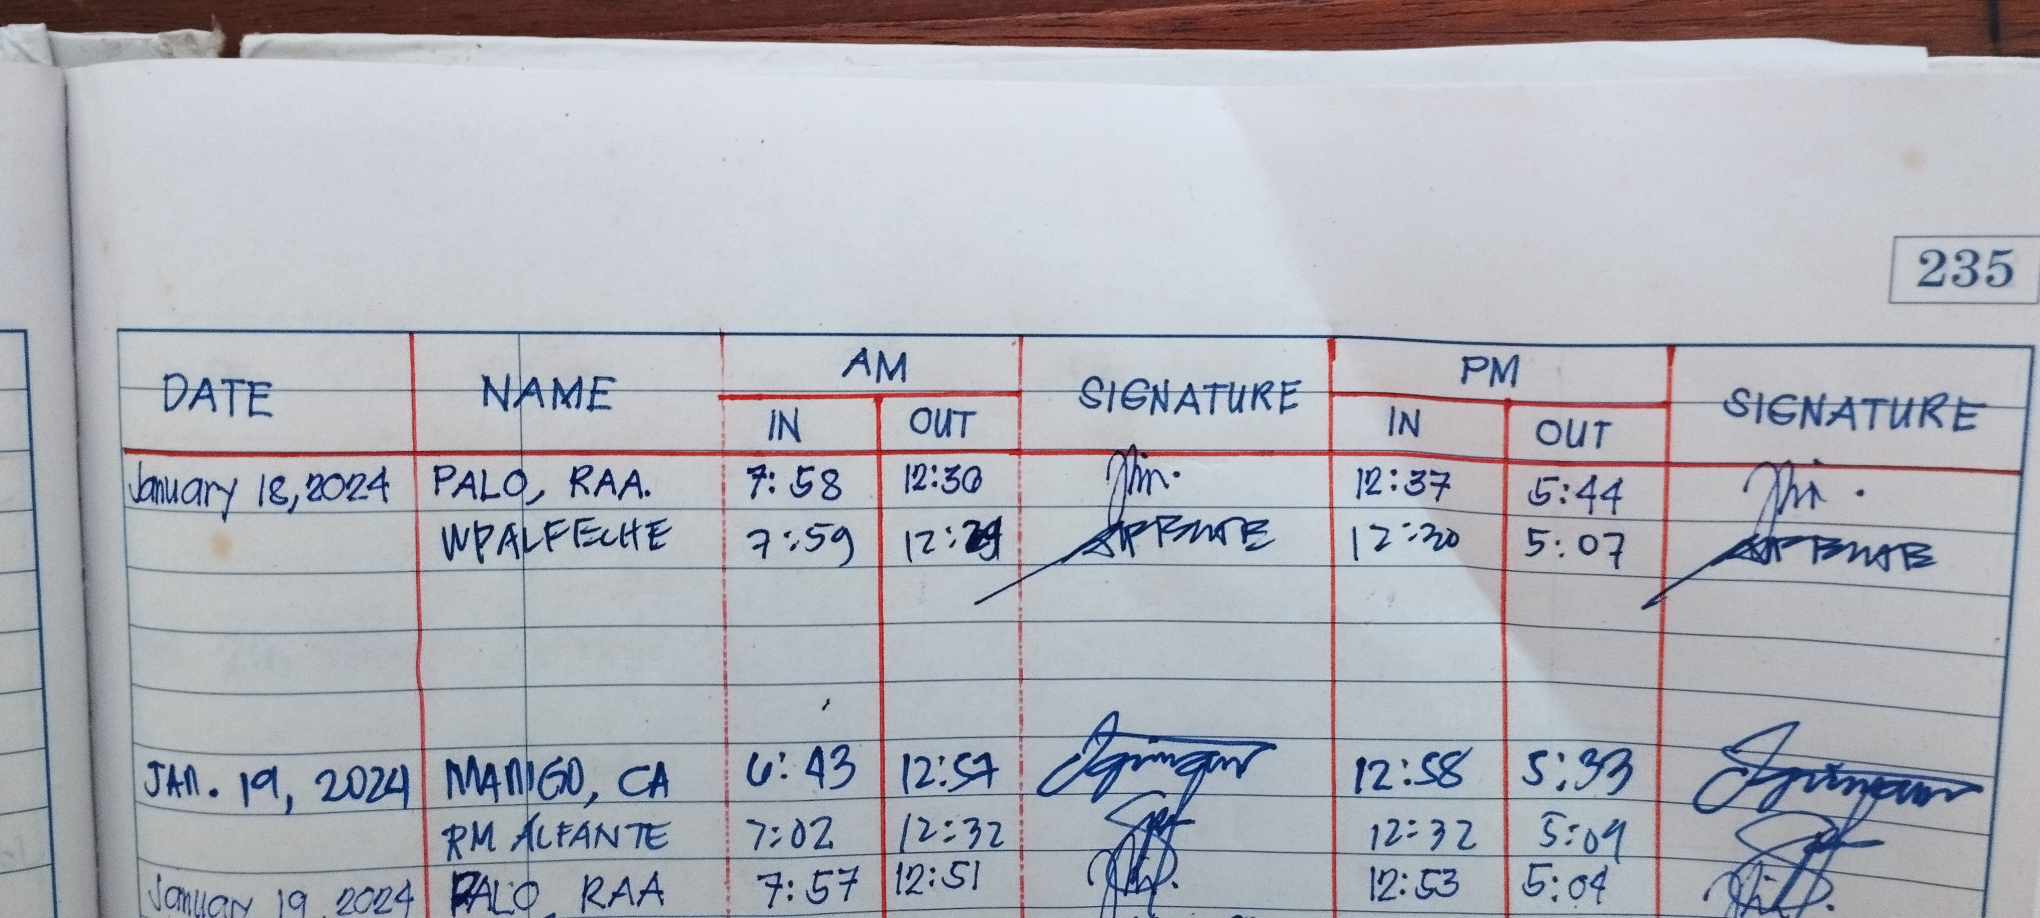 235
DATE NAME AM SIGNATURE PM SIGNATURE
IN OUT IN OUT
January 18, 2024 PALO, RAA. 7:58 12:30 12:37 5:44
WPALFECHE 7:59 12:29 12:30 5:07
JAN. 19, 2024 MANIGO, CA 6:43 12:57 12:58 5:33
RM ALFANTE 7:02 12:32 12:32 5:09
January 19, 2024 PALO, RAA 7:57 12:51 12:53 5:04